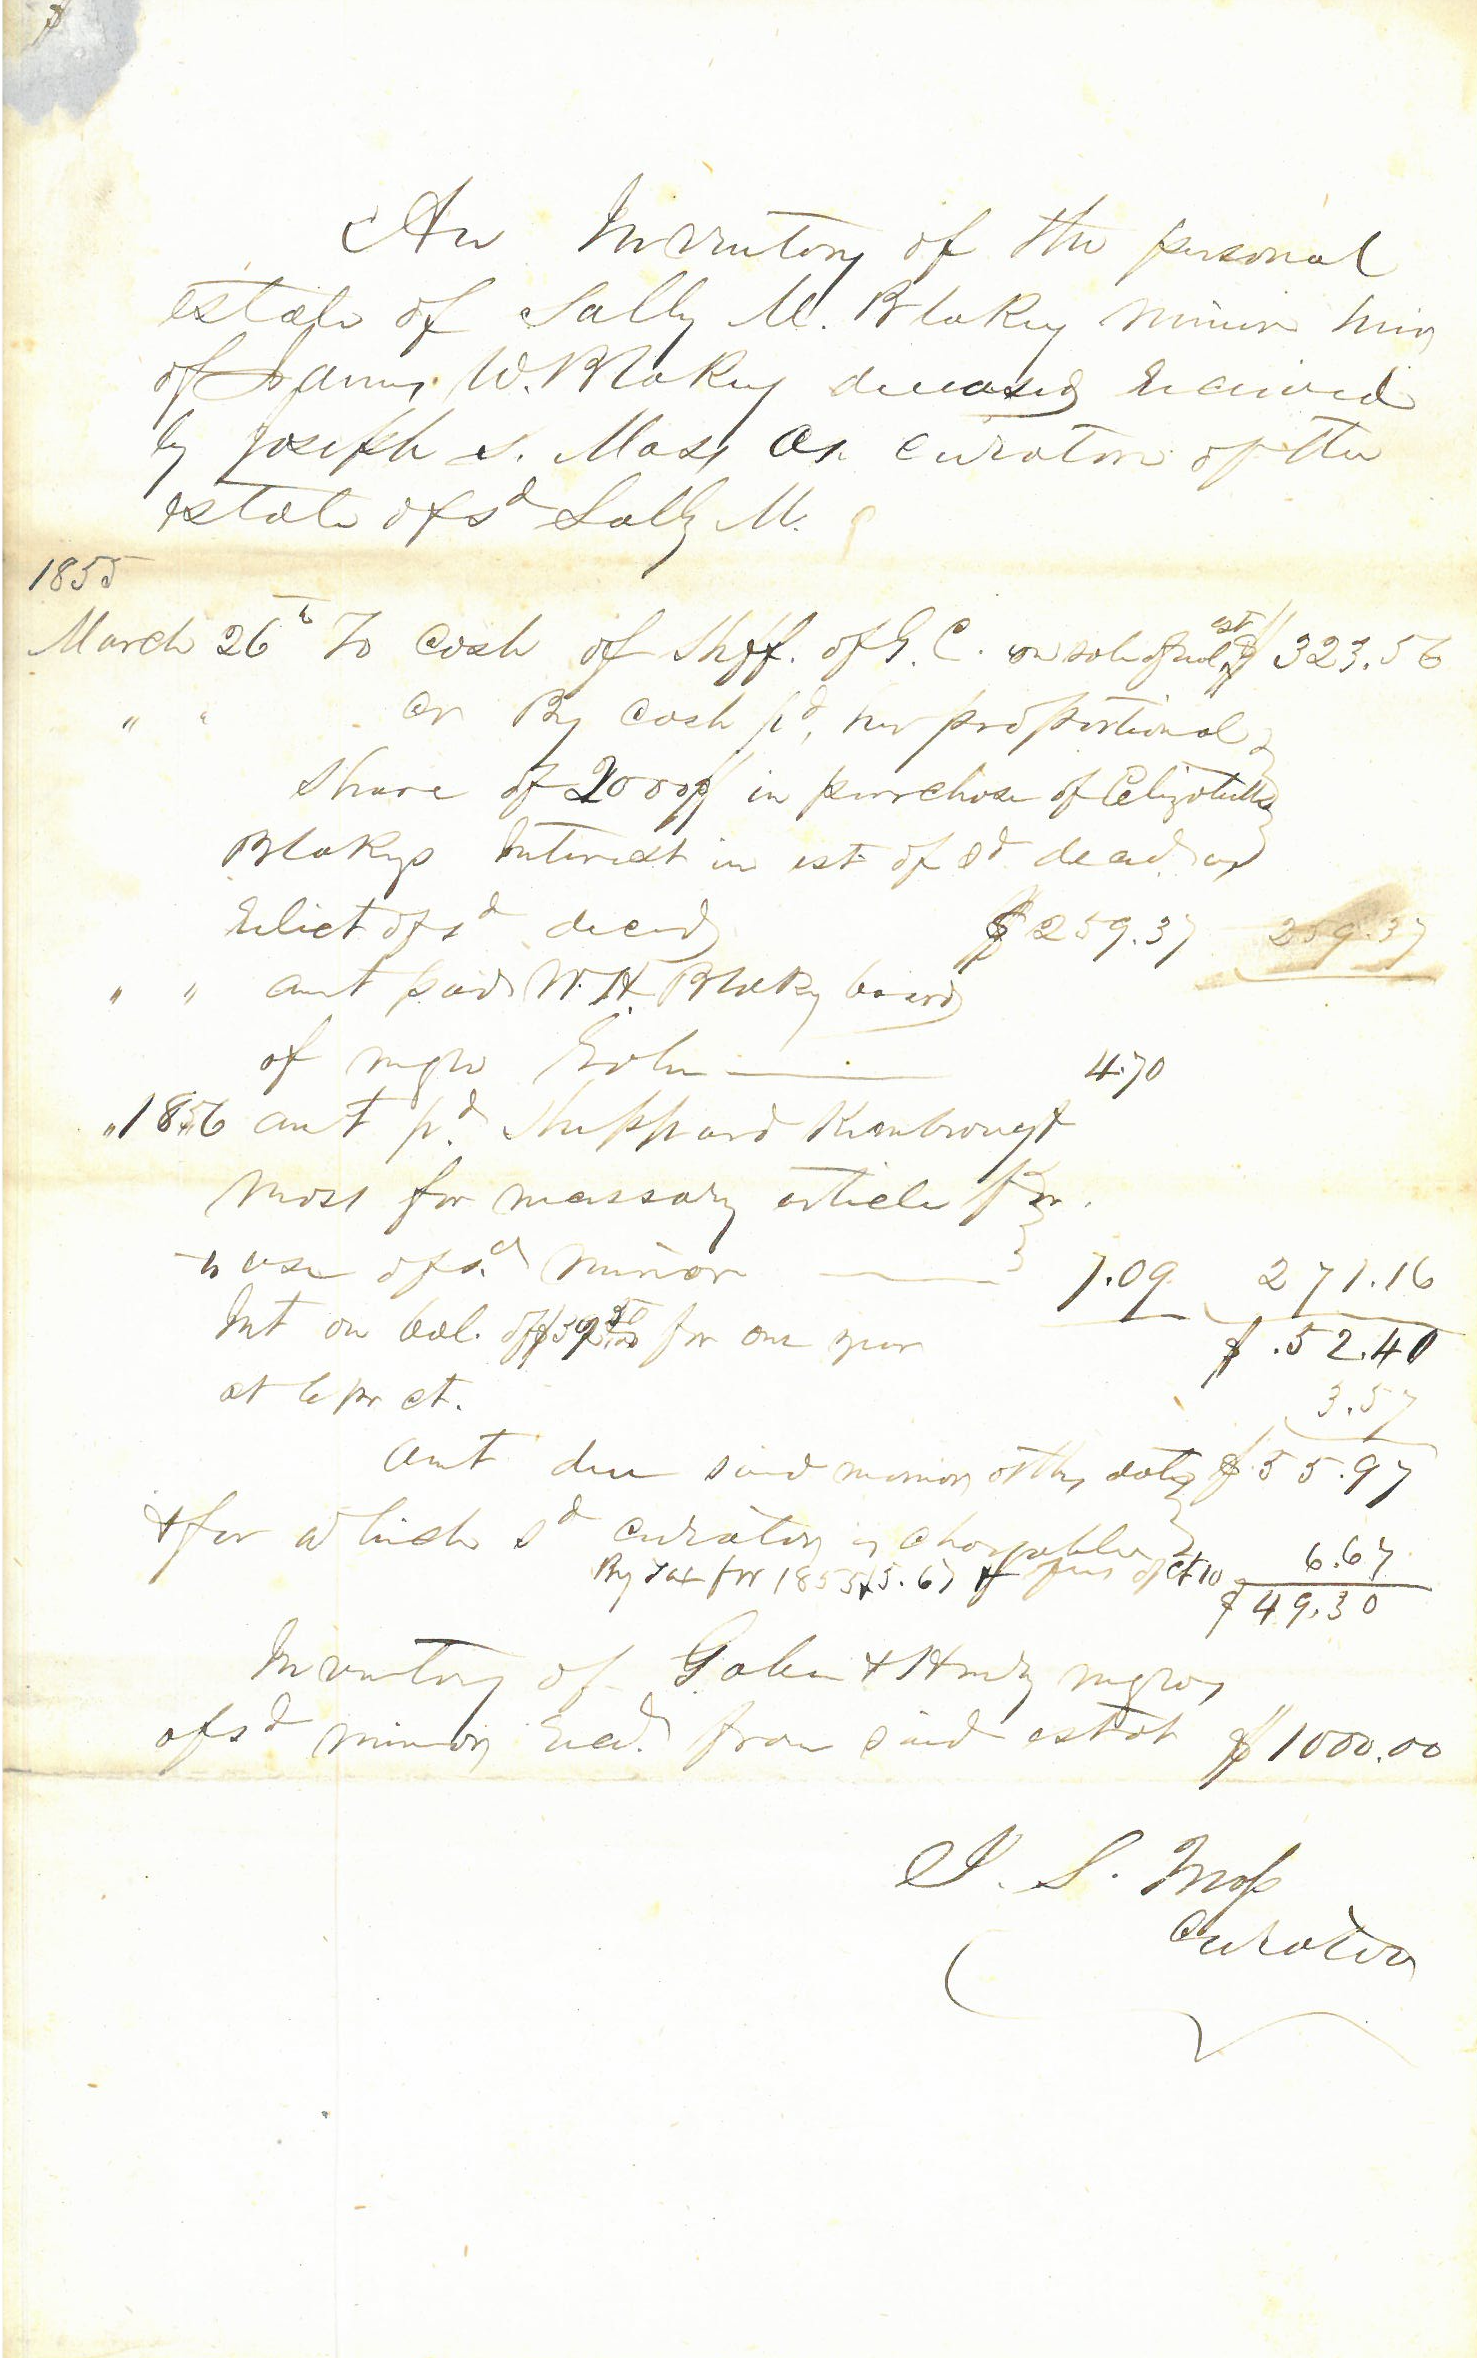 An Inventory of the personal
estate of Sally M. Blakey minor heir
of James W. Blakey deceased received
by Joseph S. Moss as curator of the
estate of sd Sally M.
1855
March 26th To cash of Shff. of G. C. on sale of real est $323.56
" " Cr By cash pd, her proportional
share of 2000$ in purchase of Elizabeth
Blakeys Interest in est. of sd decd. as
relict of sd decd $259.37 259.37
" " amt paid W. H. Blakey board
of negro 4.70
" 1856 amt pd. Sheppard Kimbrough &
Moss for necessary article for
use of sd. minor 7.09 271.16
Int on bal. of for one year $.52.40
at 6 pr ct. 3.57
amt due said minor at this date $55.97
& for which sd curator is chargable
By Tax for 1855 $5.67 & fees of ct 10 6.67
$49.30
Inventory of & negros
of sd minor recd. from said estat $1000.00
J. S. Moss
Curator